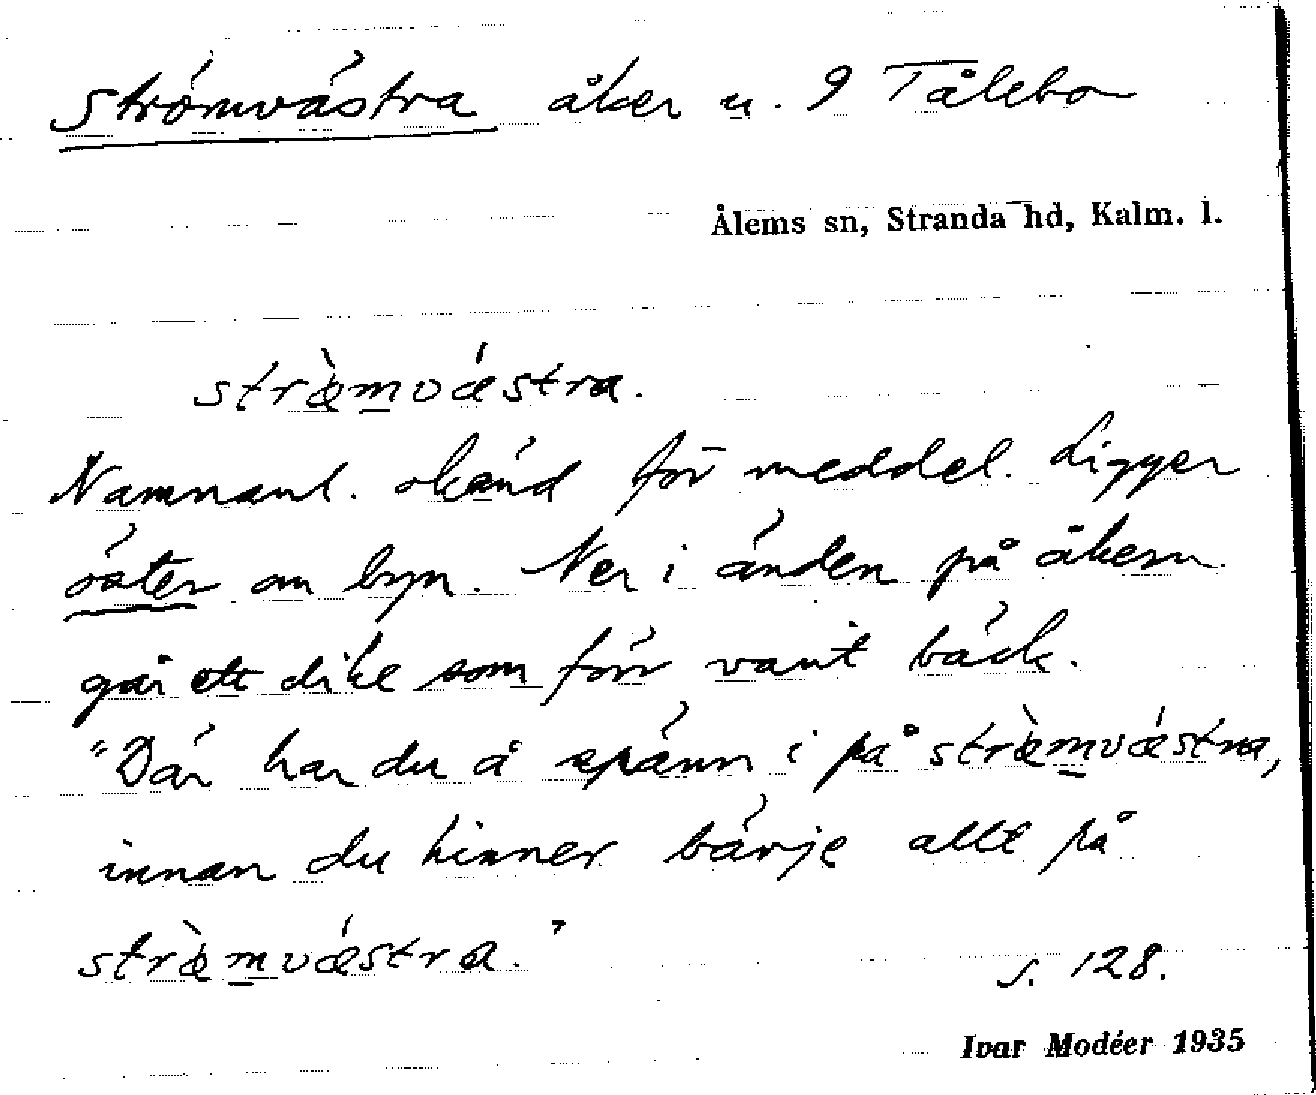 Strömvästra åker u. 9 Tålebo
Ålems sn, Stranda hd, Kalm. l.
stræ̀mvǽstra.
Namnanl. okänd för meddel. Ligger
öster om byn. Ner i änden på åkern
går ett dike som förr varit bäck.
"Där har du å spänn i på stræ̀mvǽstra,
innan du hinner bärje allt på
stræ̀mvǽstra."
s. 128.
Ivar Modéer 1935